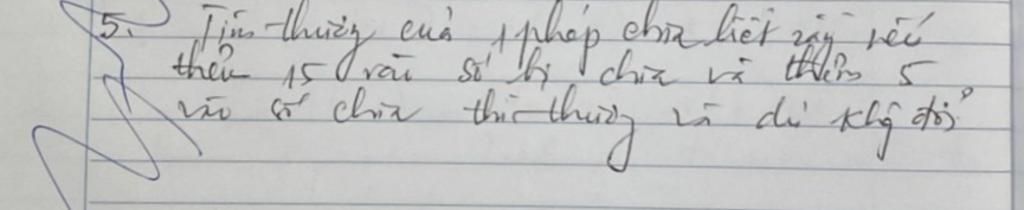 5. Tìm thương của 1 phép chia biết rằng nếu
thêm 15 vào số bị chia và thêm 5
vào số chia thì thương và dư khg đổi